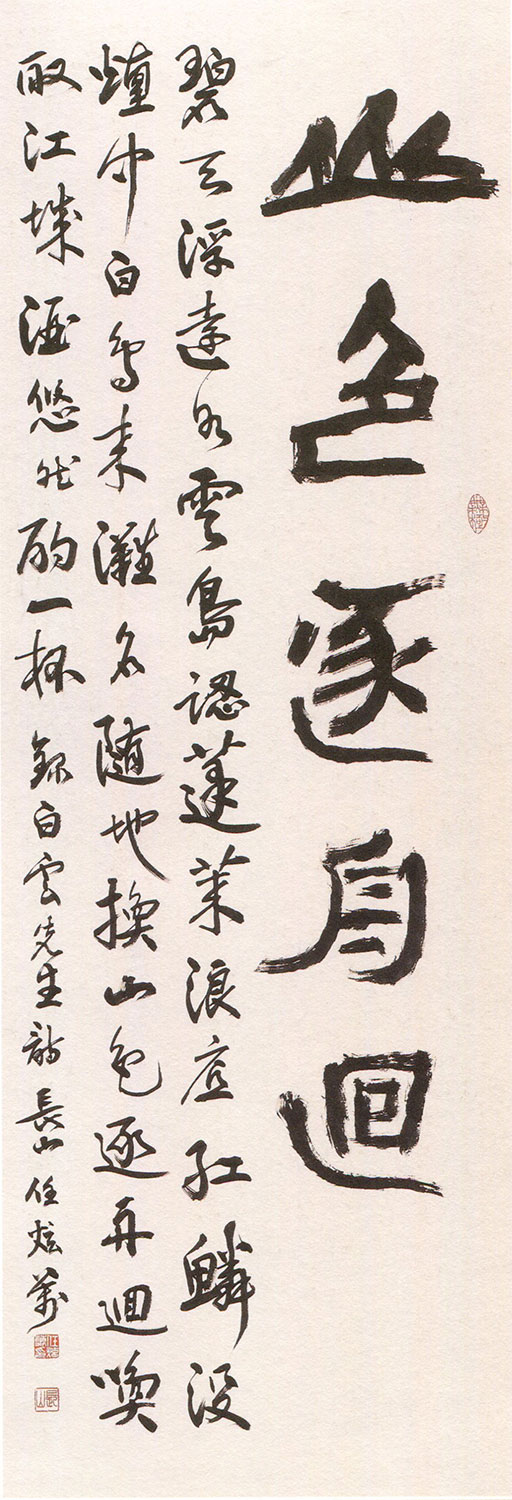 山色逐舟迴
碧天浮遠水雲島認蓬萊浪底紅鱗沒
煙中白鳥來灘名隨地換山色逐舟迴喚
取江城酒悠然酌一杯 錄白雲先生詩 長山 任炫